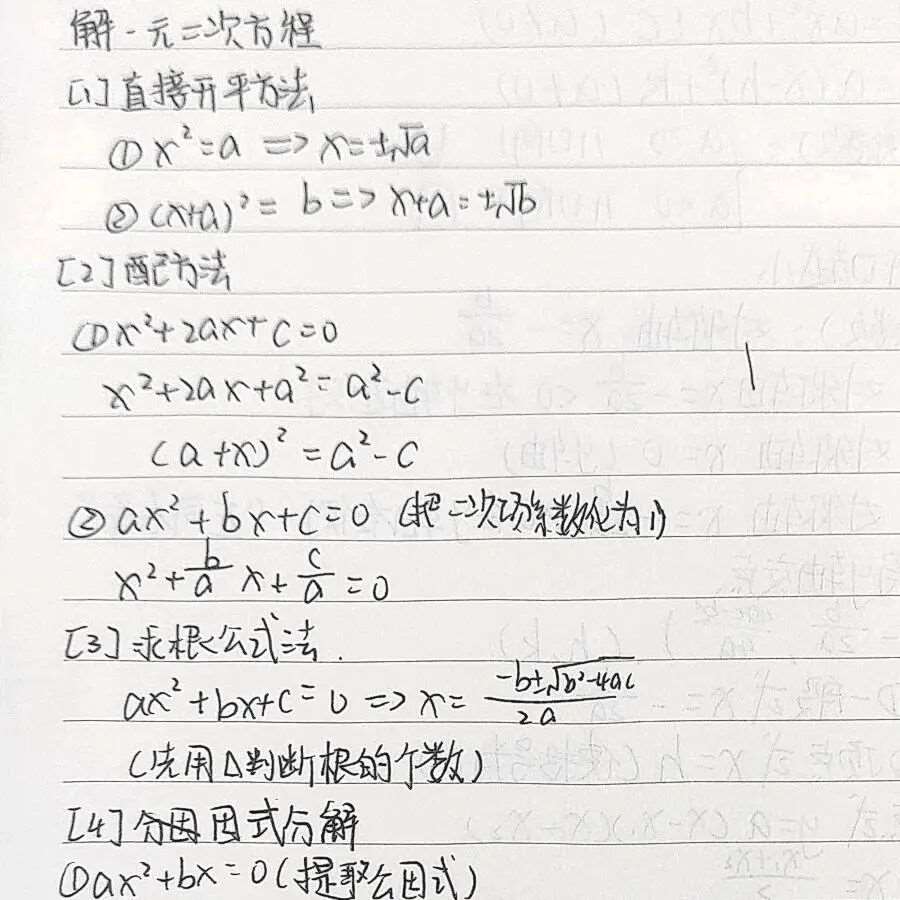 解一元二次方程
[1]直接开平方法
①x²=a => x=±√a
②(x+a)²= b => x+a=±√b
[2]配方法
①x²+2ax+c=0
x²+2ax+a²=a²-c
(a+x)²=a²-c
②ax²+bx+c=0 (把二次项系数化为1)
x²+b/a x+c/a=0
[3]求根公式法.
ax²+bx+c=0 => x= -b±√b²-4ac / 2a
(先用△判断根的个数)
[4]因式分解
①ax²+bx=0(提取公因式)